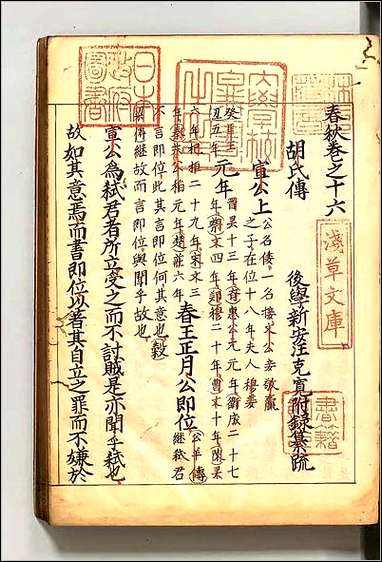 春秋卷之十六
胡氏傳 後學新安汪克寬附錄纂疏
宣公上 公名倭一名接文公妾敬嬴
之子在位十八年夫人穆姜
五年 元年 晉靈十三年齊惠公元元年衛成二十七
年蔡文四年鄭穆二十年曹文十年陳靈
六年杞桓二十九年宋文三
年秦共公稻元年楚莊六年 春王正月公即位 公羊傳
繼弒君
不言即位此其言即位何其意也穀
梁傳繼故而言即位與聞乎故也
宣公為弒君者所立受之而不討賊是亦聞乎弒也
故如其意焉而書即位以著其自立之罪而不嫌於
日本政府圖書
淺草文庫
書籍館